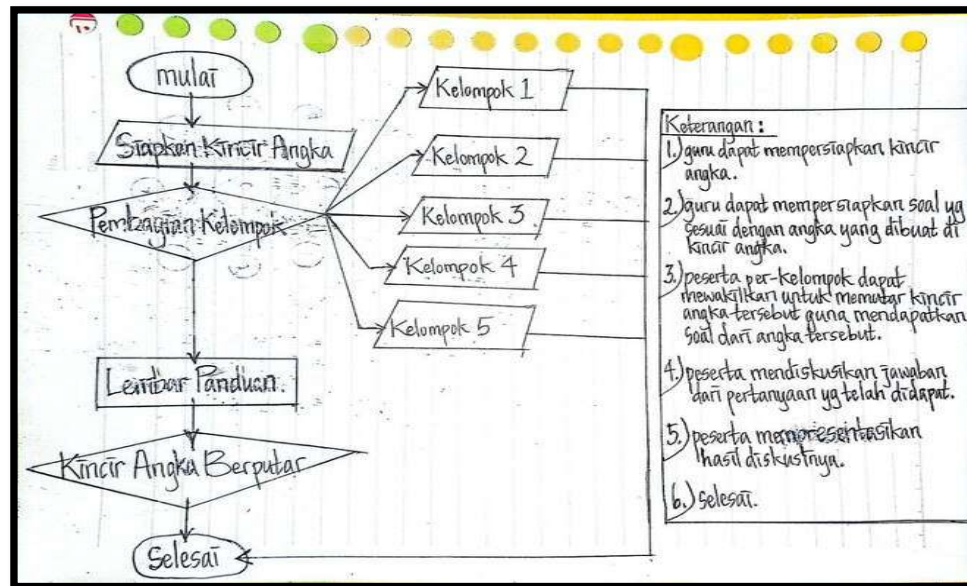 mulai
Siapkan Kincir Angka
Pembagian Kelompok
Kelompok 1
Kelompok 2
Kelompok 3
Kelompok 4
Kelompok 5
Lembar Panduan.
Kincir Angka Berputar
Selesai
Keterangan :
1.) guru dapat mempersiapkan kincir
angka.
2.) guru dapat mempersiapkan soal yg
sesuai dengan angka yang dibuat di
kincir angka.
3.) peserta per-kelompok dapat
mewakilkan untuk memutar kincir
angka tersebut guna mendapatkan
soal dari angka tersebut.
4.) peserta mendiskusikan jawaban
dari pertanyaan yg telah didapat.
5.) peserta mempresentasikan
hasil diskusinya.
6.) selesai.